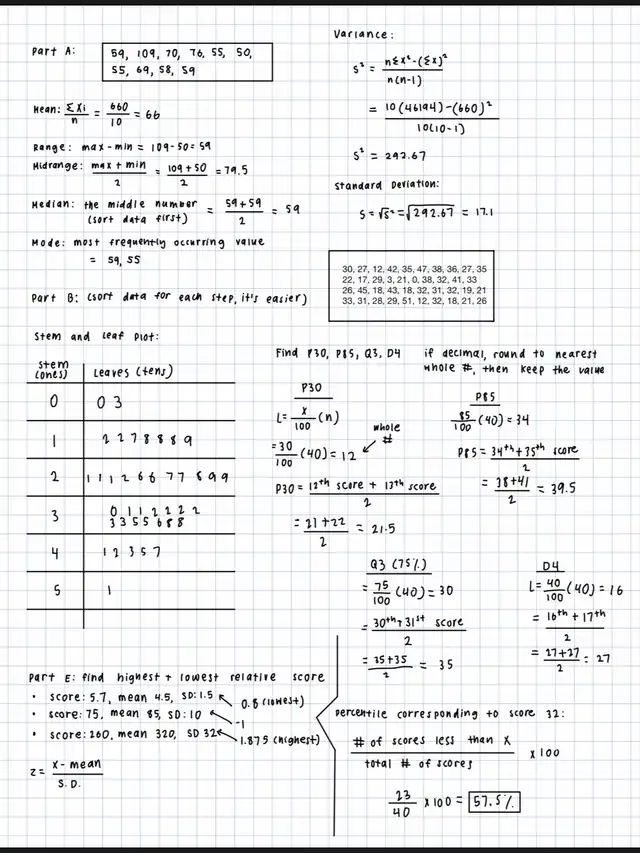 Part A:
59, 109, 70, 76, 55, 50,
55, 69, 58, 59
Mean: ΣXi/n = 660/10 = 66
Range: max - min = 109-50 = 59
Midrange: max + min/2 = 109+50/2 = 79.5
Median: the middle number (sort data first) = 59+59/2 = 59
Mode: most frequently occurring value
= 59, 55
Variance:
S² = nΣx²-(Σx)²/n(n-1)
= 10(46194)-(660)²/10(10-1)
S² = 292.67
Standard Deviation:
S = √S² = √292.67 = 17.1
Part B: (sort data for each step, it's easier)
30, 27, 12, 42, 35, 47, 38, 36, 27, 35
22, 17, 29, 3, 21, 0, 38, 32, 41, 33
26, 45, 18, 43, 18, 32, 31, 32, 19, 21
33, 31, 28, 29, 51, 12, 32, 18, 21, 26
Stem and Leaf Plot:
Stem (ones) Leaves (tens)
0 0 3
1 2 2 7 8 8 8 9
2 1 1 1 2 6 6 7 7 8 9 9
3 0 1 1 2 2 2 2
3 3 5 5 6 8 8
4 1 2 3 5 7
5 1
Find P30, P85, Q3, D4 if decimal, round to nearest
whole #, then keep the value
P30
L = x/100 (n)
= 30/100 (40) = 12 whole #
P30 = 12th score + 13th score/2
= 21+22/2 = 21.5
P85
85/100 (40) = 34
P85 = 34th + 35th score/2
= 38+41/2 = 39.5
Q3 (75%)
= 75/100 (40) = 30
= 30th + 31st score/2
= 35+35/2 = 35
D4
L = 40/100 (40) = 16
= 16th + 17th/2
= 27+27/2 = 27
Part E: find highest + lowest relative score
• score: 5.7, mean 4.5, SD: 1.5 0.8 (lowest)
• score: 75, mean 85, SD: 10 -1
• score: 260, mean 320, SD 32 1.875 (highest)
z = x - mean/S.D.
percentile corresponding to score 32:
# of scores less than X/total # of scores x 100
23/40 x 100 = 57.5%